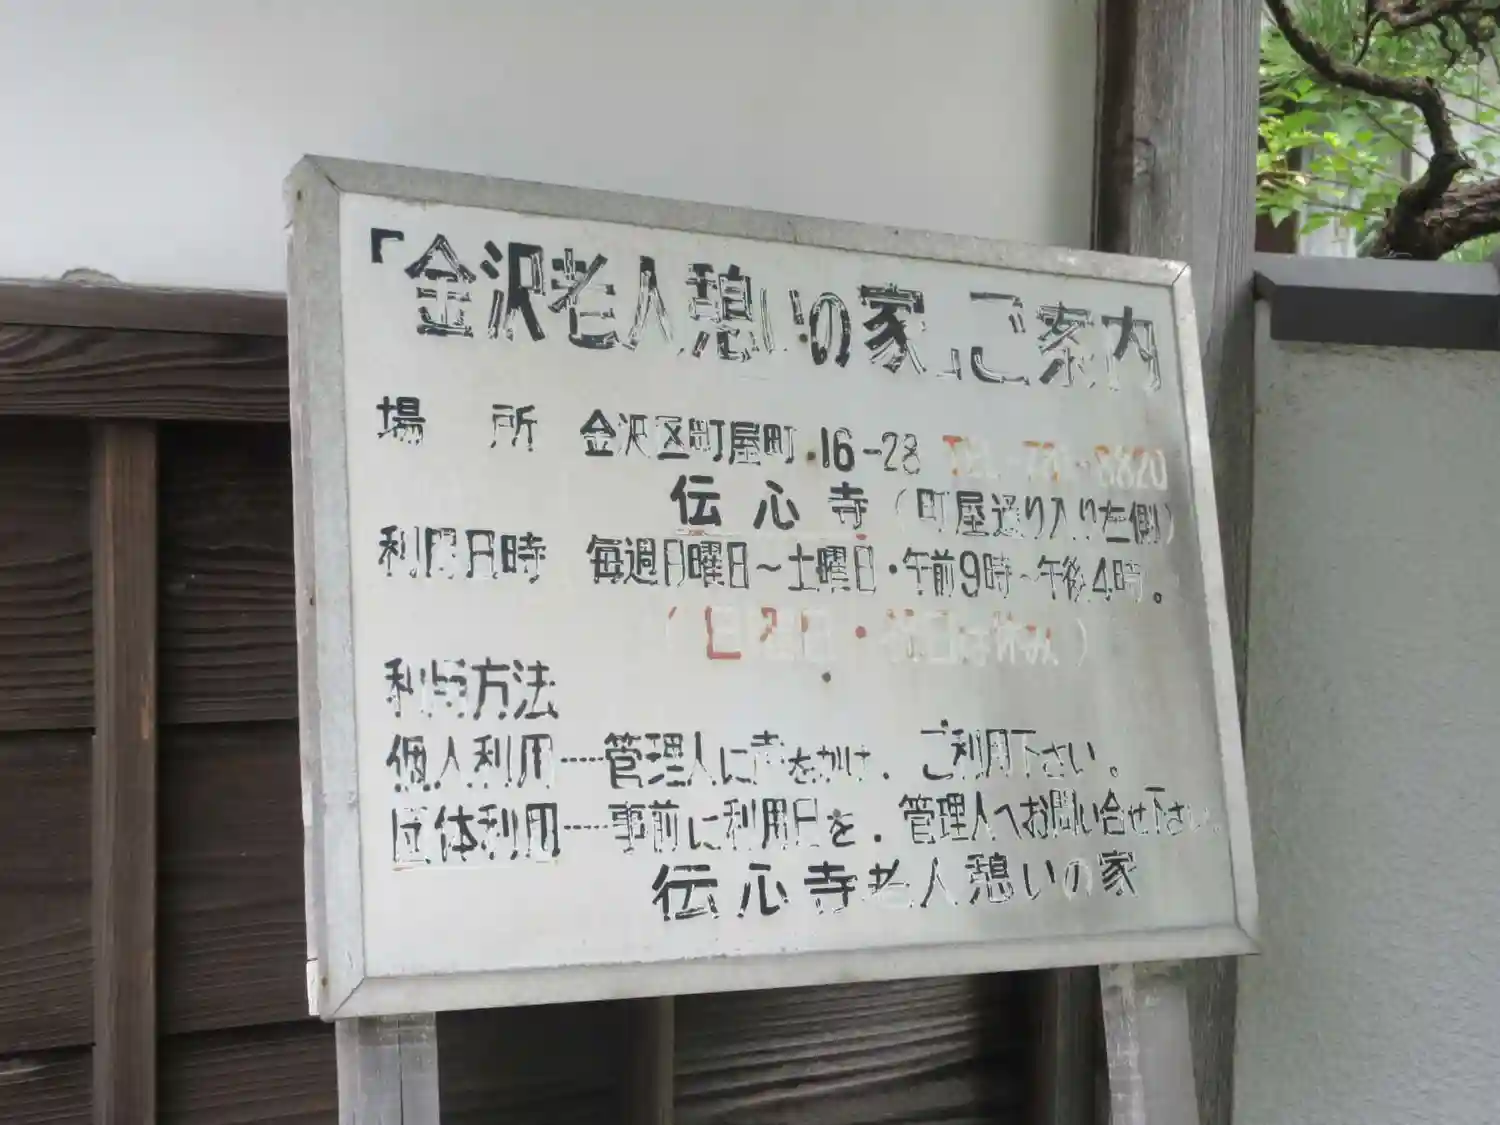 「金沢老人憩いの家」ご案内
場 所 金沢区町屋町.16-28 TEL-781-8820
伝心寺(町屋通り入り左側)
利用日時 毎週月曜日~土曜日・午前9時~午後4時。
・祝日は休み)
利用方法
個人利用……管理人に声をかけ、ご利用下さい。
団体利用……事前に利用日を、管理人へお問い合せ下さい。
伝心寺老人憩いの家